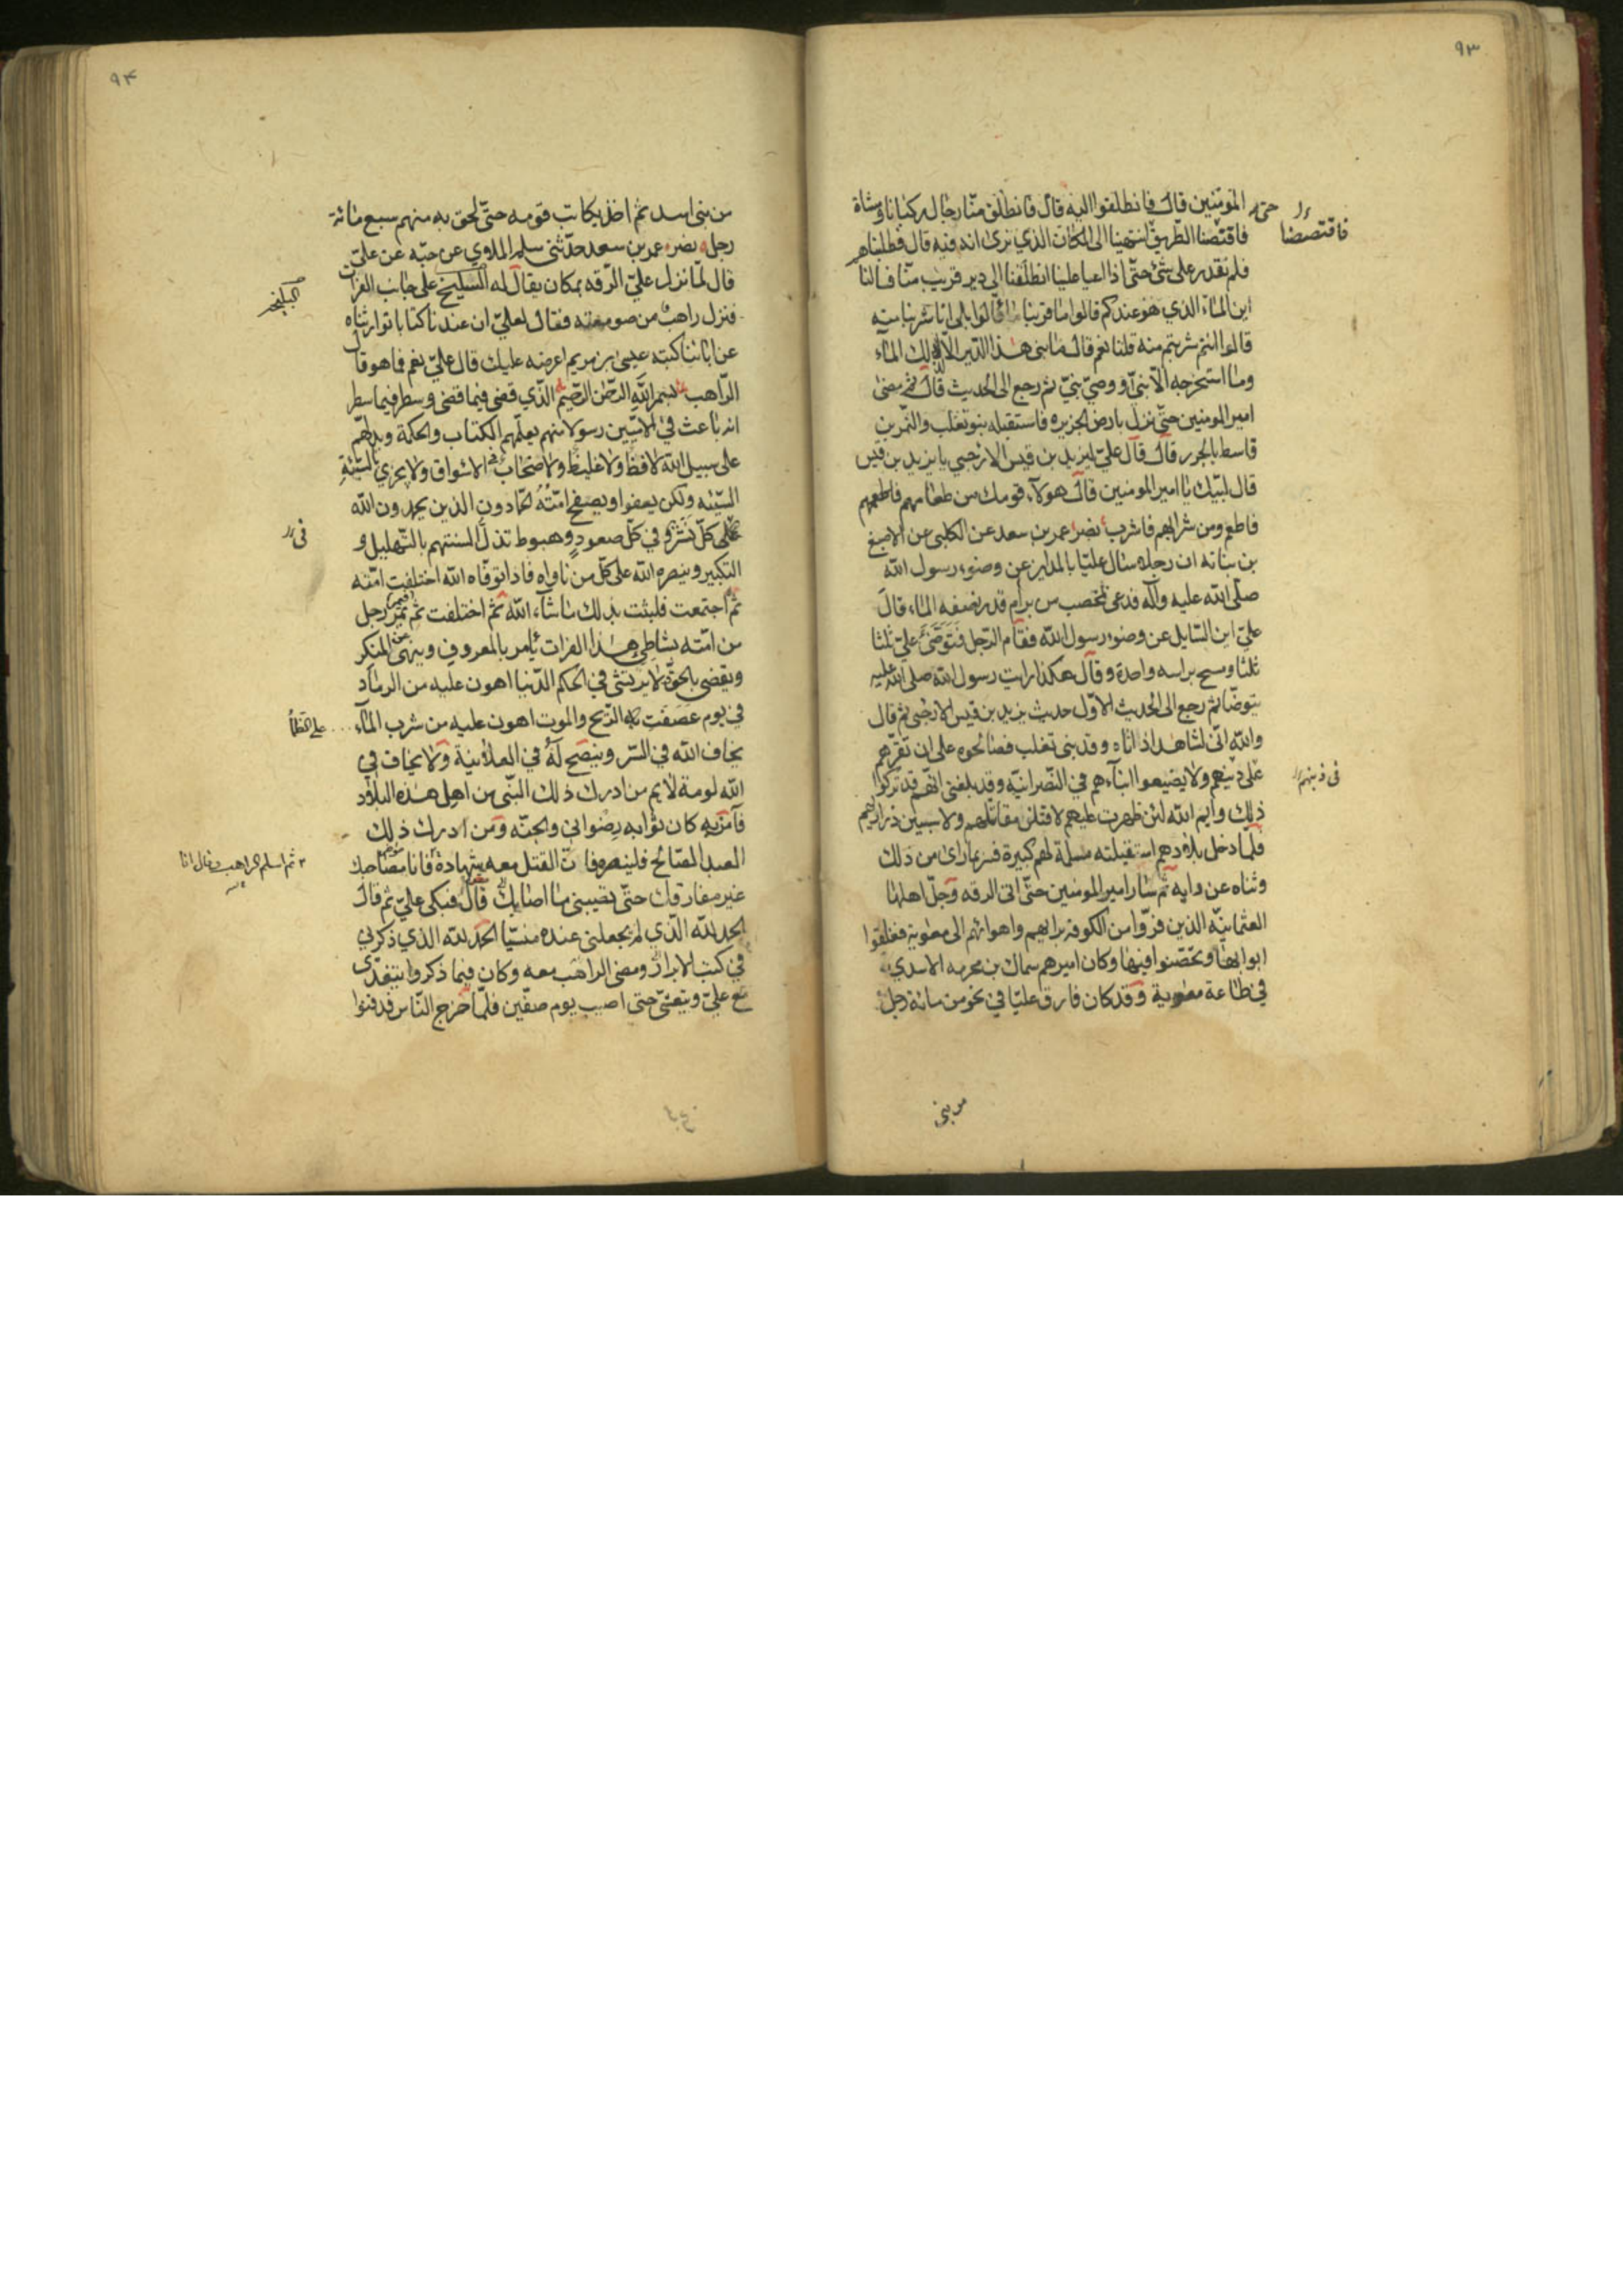 ٩٣
المؤمنين قال فانطلقوا اليه قال فانطلق منّا رجال ركبانا ومشاة
فاقتصصنا
حتى
فاقتصنا الطريق انتهينا الى المكان الذي نرى انه فيه قال فطلبناها
فلم نقدر على شئ حتّى اذا اعيا علينا انطلقنا الى دير قريب منّا فسالنا
اين الماء الذي هو عندكم قالوا ما قربنا ماء قالوا بلى انا شربنا منه
قالوا انتم شربتم منه قلنا نعم قال ما بنى هذا الدير الا لذلك الماء
وما استخرجه الا نبىّ او وصىّ نبىّ ثم رجع الى الحديث قال ثم مضى
امير المومنين حتى نزل بارض الجزيره فاستقبله بنو تغلب والنمر بن
قاسط بالجزر قال قال علىّ ليزيد بن قيس الارحبي يا يزيد بن قيس
قال لبّيك يا امير المومنين قال هولاء قومك من طعامهم فاطعمهم
فاطعم ومن شرابهم فاشرب نصر عمر بن سعد عن الكلبى عن الاصبغ
بن نباته ان رجلا سال عليّا بالمداين عن وضوء رسول الله
صلّى الله عليه وآله فدعى بمخضب من برام قد نصفه الماء قال
علىّ اين السّايل عن وضوء رسول الله فقام الرّجل فتوضّئ علىّ ثلثا
ثلثا ومسح براسه واحدة وقال هكذا رايت رسول الله صلى الله عليه
يتوضّا ثم رجع الى الحديث الاوّل حديث يزيد بن قيس الارحبى ثم قال
والله انّى لشاهد اذ اتاه وفد بنى تغلب فصالحوه على ان تقرّهم
على دينهم ولا يضيعوا ابناءهم فى النّصرانيّة وقد بلغنى انّهم قد تركوا
فى دينهم
ذلك وايم الله لئن ظهرت عليهم لاقتلن مقاتلهم ولاسبين ذراريهم
فلمّا دخل بلادهم استقبلته مسلمة لهم كبيرة فسر بما راى من ذلك
وثناه عن رايه ثم سار امير المومنين حتّى اتى الرقه وجلّ اهلها
العثمانيّة الذين فرّوا من الكوفة برايهم واهوائهم الى معوية فغلقوا
ابوابها وتحصّنوا فيها وكان اميرهم سماك بن مخرمه الاسدي
في طاعة معوية وقد كان فارق عليّا في نحو من مائة رجل
من بنى
٩٤
من بنى اسد ثم اخذ يكاتب قومه حتّى لحق به منهم سبع مائة
رجل نصر عمر بن سعد حدّثنى سلم الملاوي عن حبّه عن علىّ
قال لمّا نزل علىّ الرّقه بمكان يقال له السليخ على جانب الفرات
البليخ
فنزل راهب من صومعته فقال لعلىّ ان عندنا كتابا توارثناه
عن ابائنا كتبه عيسى بن مريم اعرضه عليك قال علىّ نعم فما هو قال
الرّاهب بسم الله الرّحمن الرّحيم الّذي قضى فيما قضى وسطر فيما سطر
انه باعث في الامّيين رسولا منهم يعلّمهم الكتاب والحكمة ويدلهّم
على سبيل الله لا فظّ ولا غليظ ولا صخّاب فى الاسواق ولا يجزي بالسّيّئة
السّيّئه ولكن يعفوا ويصفح امّته الحمّادون الذين يحمدون الله
على كلّ نشز وفي كلّ صعود وهبوط تذلّ السنتهم بالتّهليل و
فى
التكبير وينصره الله على كلّ من ناواه فاذا توفّاه الله اختلفت امّته
ثم اجتمعت فلبثت بذلك ما شاء الله ثم اختلفت ثم تمرّ رجل
من امّته بشاطئ هذا الفرات يأمر بالمعروف وينهى عن المنكر
ويقضى بالحق ولا يرتشى في الحكم الدّنيا اهون عليه من الرماد
في يوم عصفت به الرّيح والموت اهون عليه من شرب الماء
على الظمأ
يخاف الله في السّر وينصح له في العلانية ولا يخاف في
الله لومة لايم من ادرك ذلك النبّى من اهل هذه البلاد
فآمن به كان ثوابه رضوانى والجنّه ومن ادرك ذلك
العبد الصّالح فلينصره فانّ القتل معه شهادة فانا مصاحبك
ثم اسلم الراهب وقال انا
غير مفارقك حتّى يصيبنى ما اصابك قال فبكى علىّ ثم قال
الحمد لله الّذي لم يجعلنى عنده منسيّا الحمد لله الذي ذكرني
في كتب الابرار ومضى الراهب معه وكان فيما ذكروا يتغدّى
مع علىّ ويتعشّى حتى اصيب يوم صفّين فلمّا خرج النّاس يدفنوا